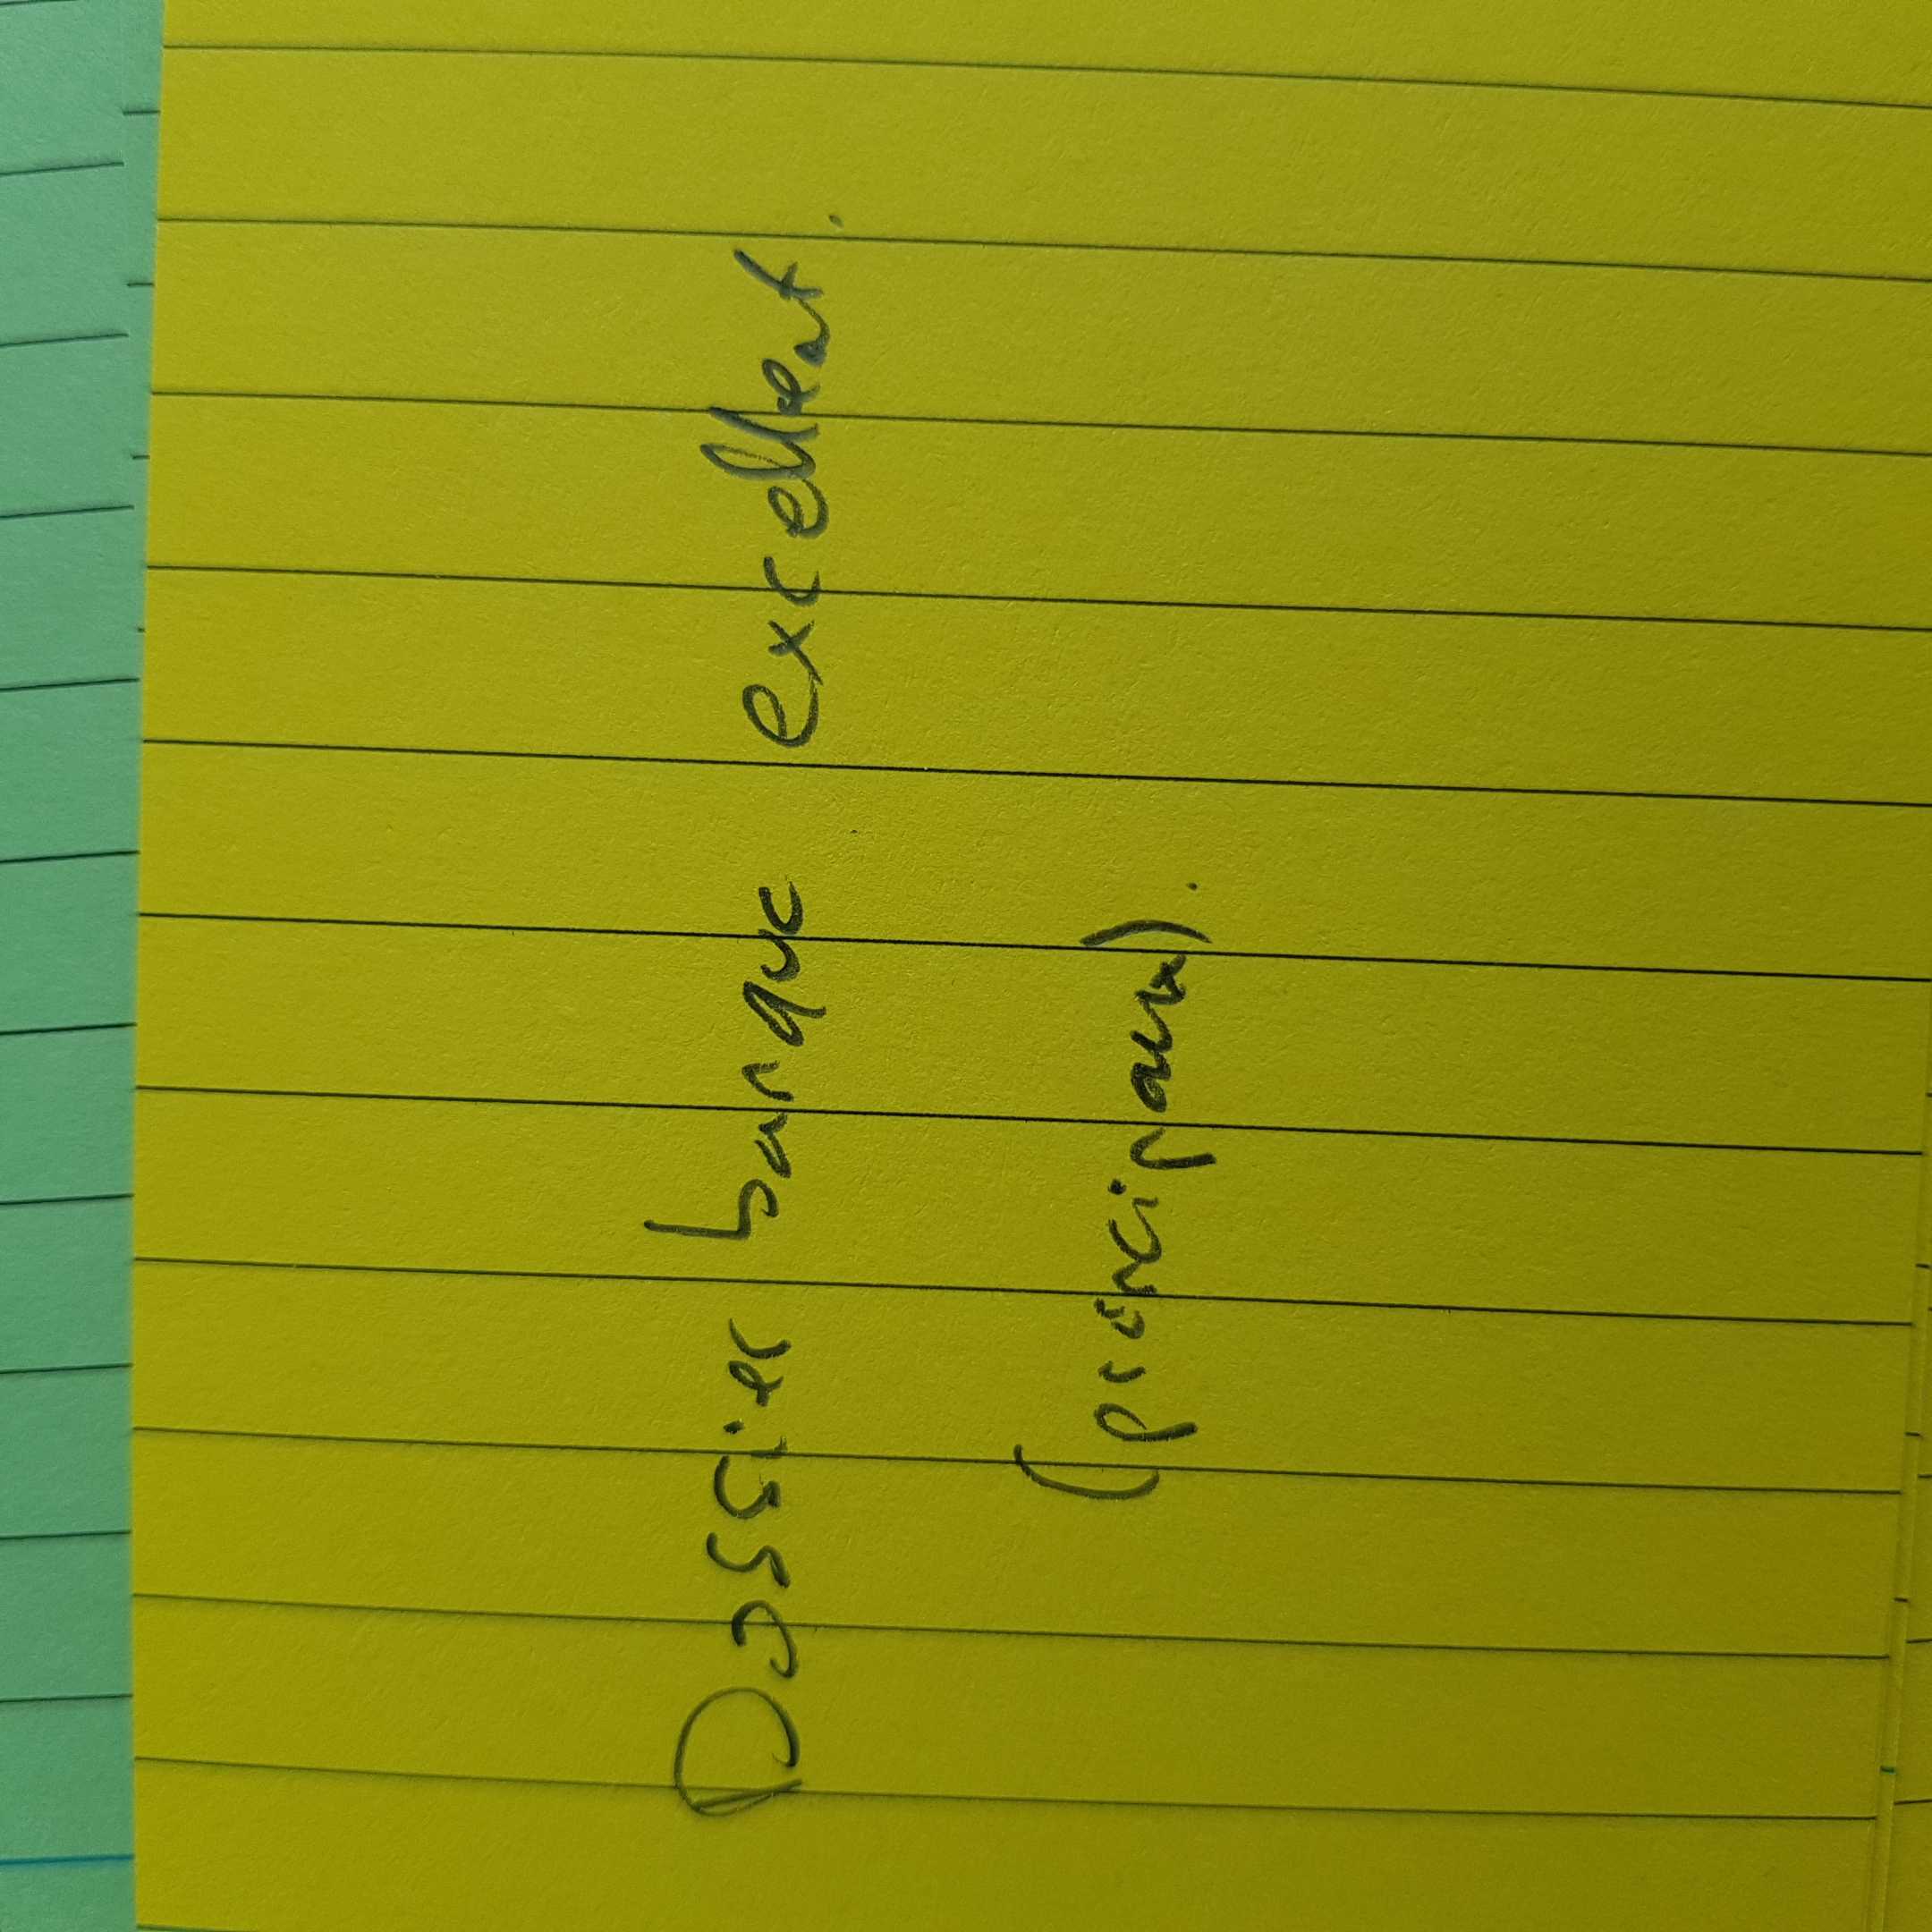 Dossier banque excellent.
(principaux).